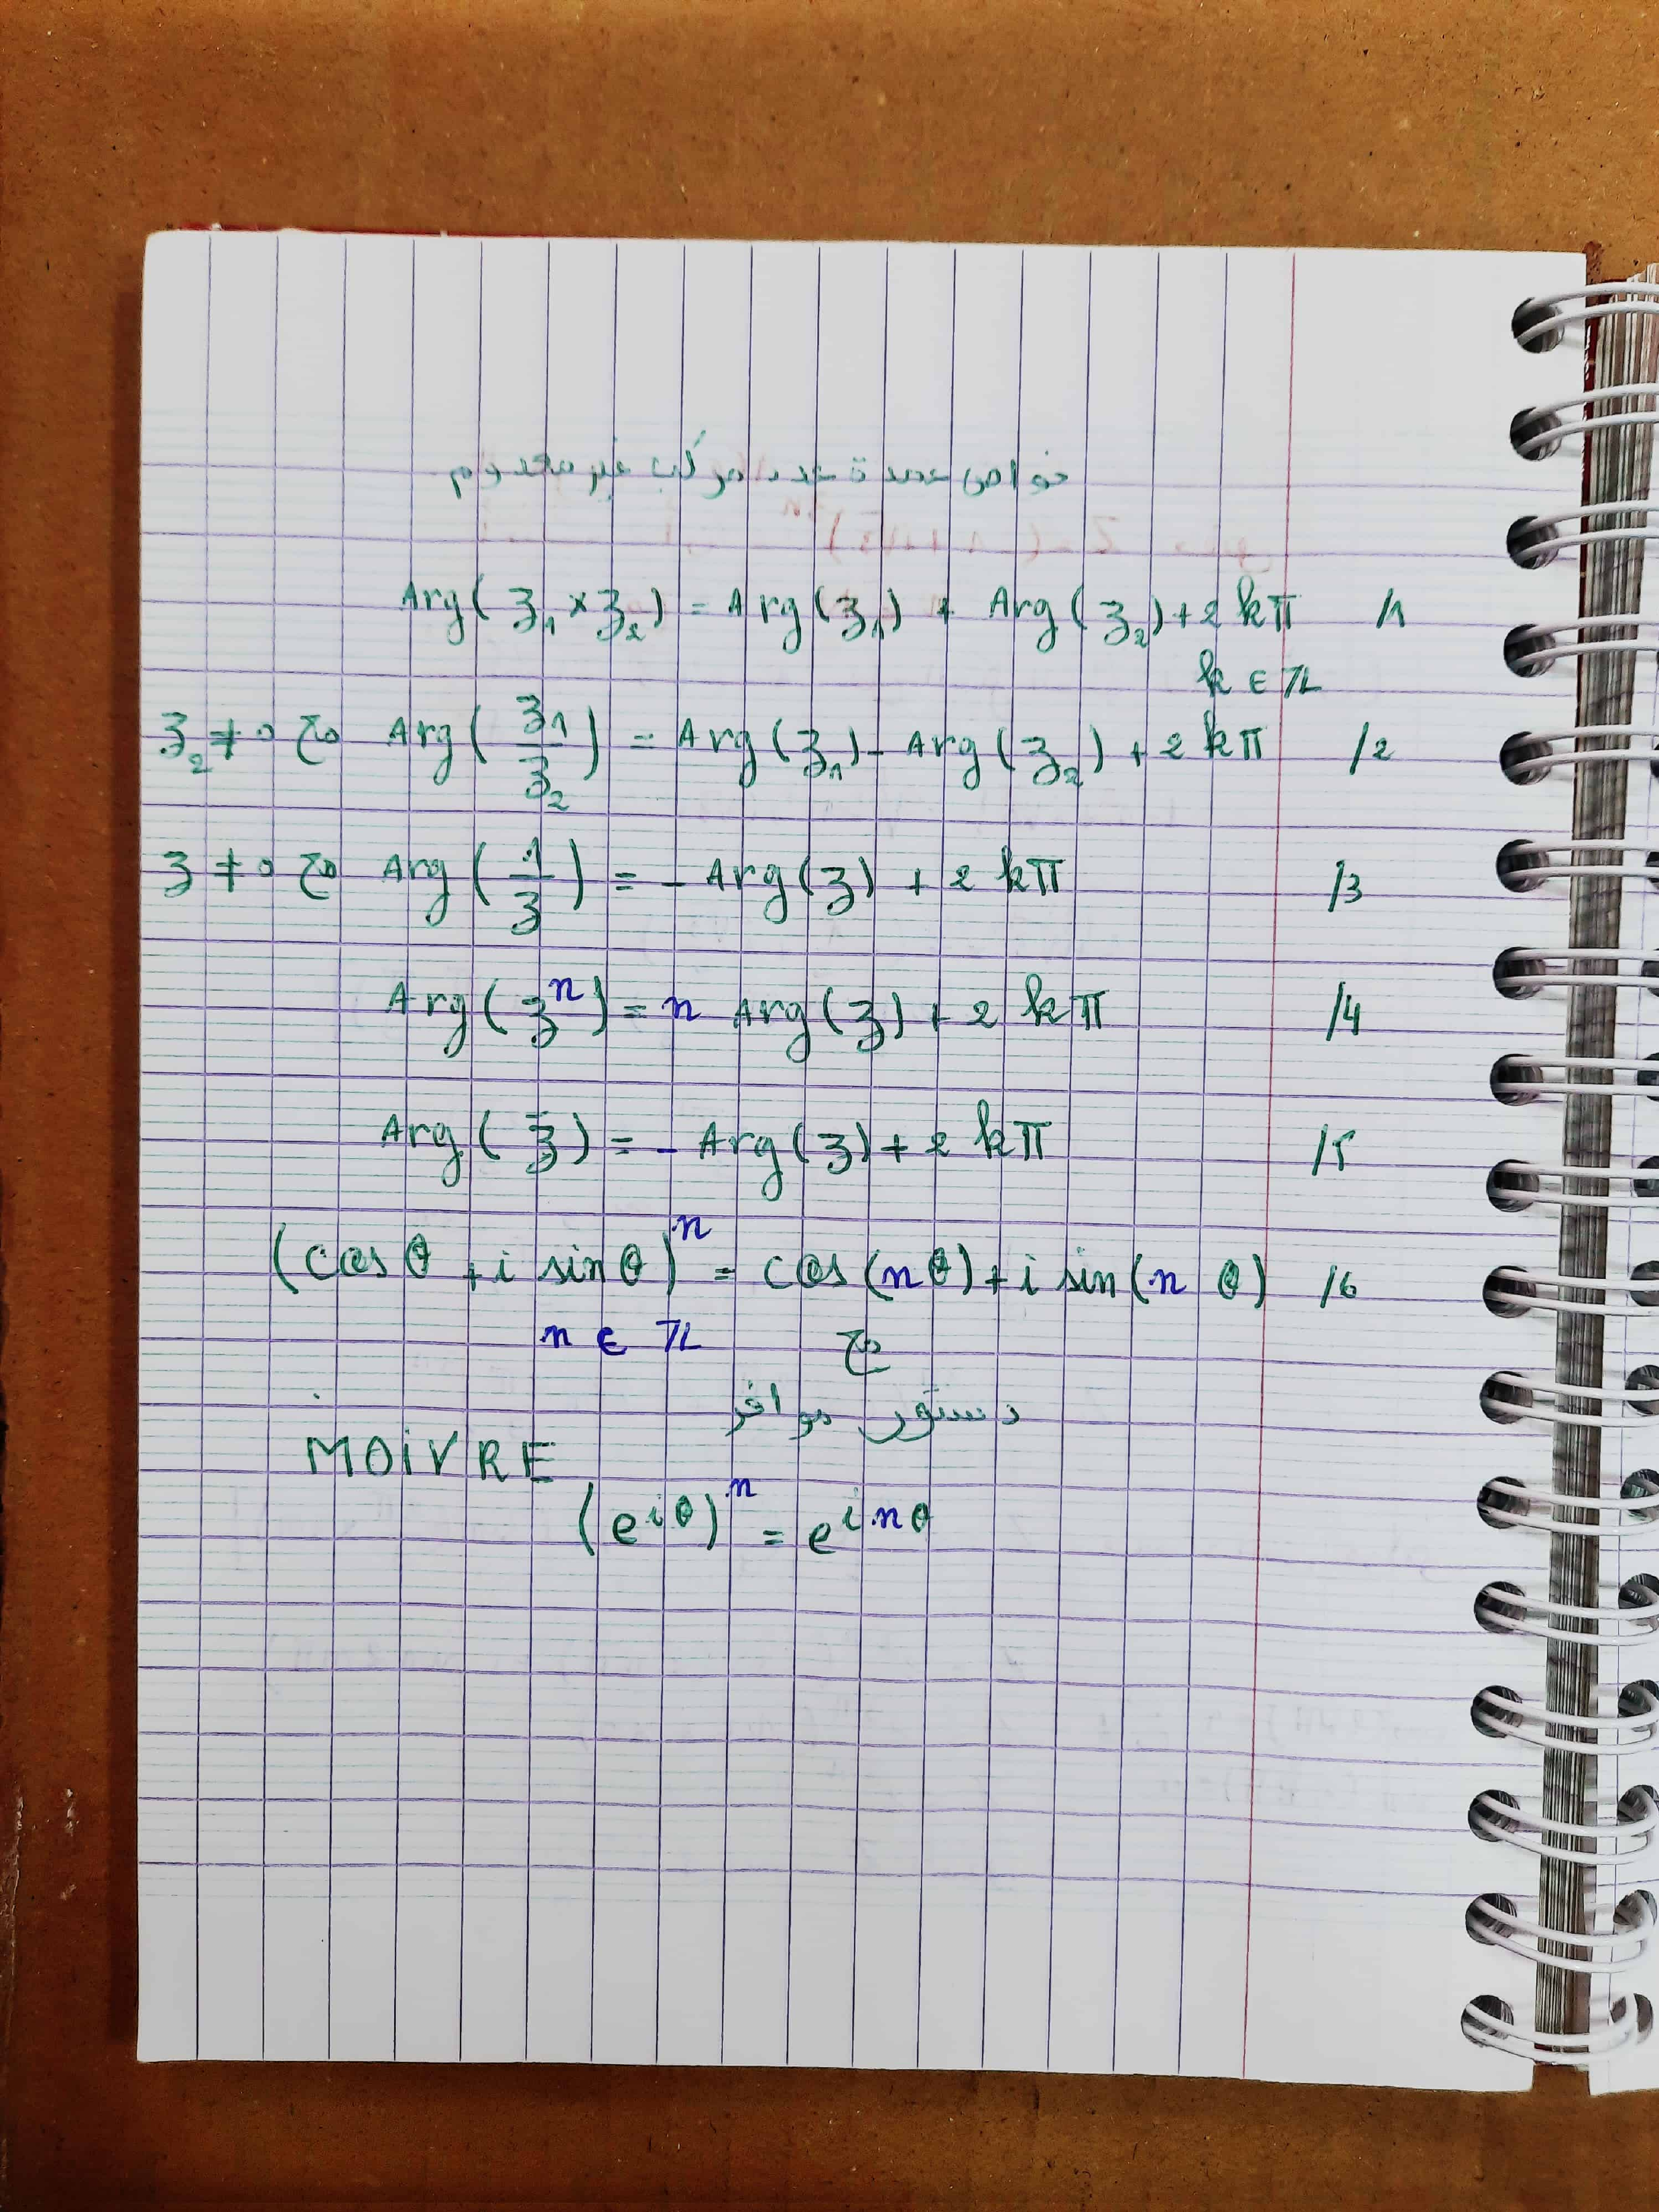 خواص عمدة عدد مركب غير معدوم
Arg(z₁ × z₂) = Arg(z₁) + Arg(z₂) + 2kπ /1
k ∈ ℤ
z₂ ≠ 0 مع Arg(z₁/z₂) = Arg(z₁) - Arg(z₂) + 2kπ /2
z ≠ 0 مع Arg(1/z) = - Arg(z) + 2kπ /3
Arg(zⁿ) = n Arg(z) + 2kπ /4
Arg(z̄) = - Arg(z) + 2kπ /5
(cos θ + i sin θ)ⁿ = cos(nθ) + i sin(n θ) /6
n ∈ ℤ مع
دستور موافر
MOiVRE
(e^{iθ})ⁿ = e^{inθ}